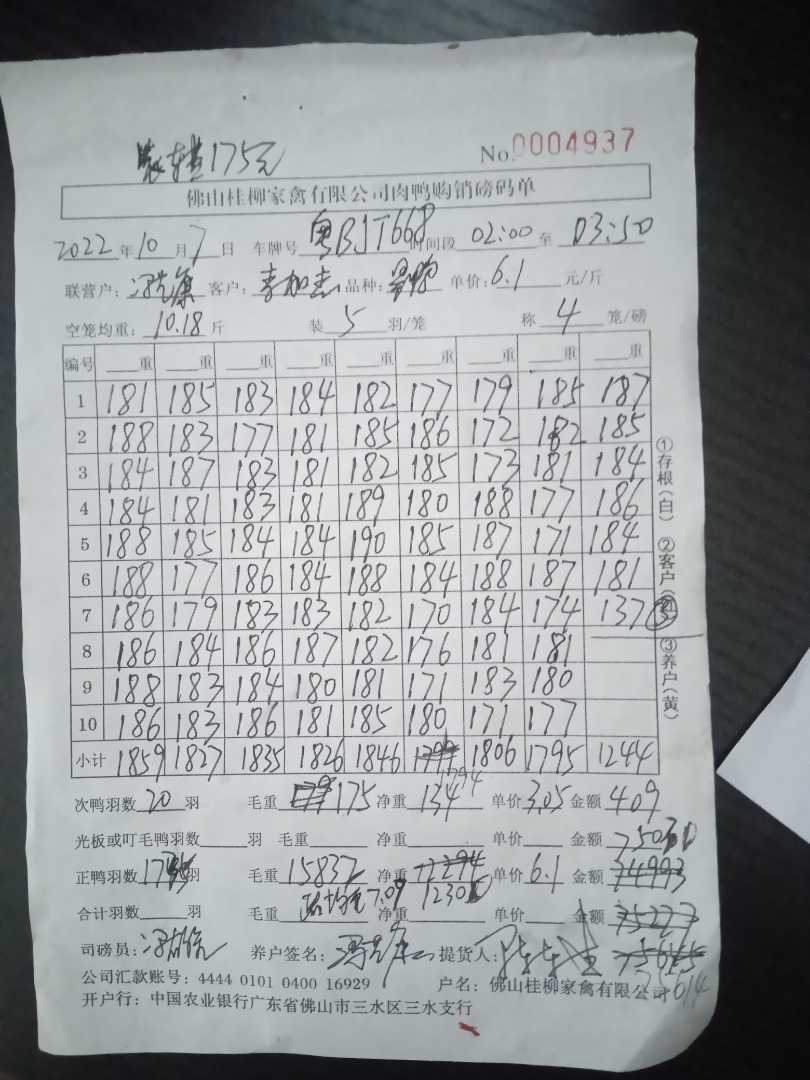 装车费175元
No.0004937
佛山桂柳家禽有限公司肉鸭购销磅码单
2022年10月7日 车牌号 粤BJT668 时间段 02:00 至 03:50
联营户: 客户: 李加志 品种: 单价: 6.1 元/斤
空笼均重: 10.18 斤 装 5 羽/笼 称 4 笼/磅
编号 重 重 重 重 重 重 重 重 重
1 181 185 183 184 182 177 179 185 187
2 188 183 177 181 185 186 172 182 185
3 184 187 183 181 182 185 173 181 184
4 184 181 183 181 189 180 188 177 186
5 188 185 184 184 190 185 187 171 184
6 188 177 186 184 188 184 188 187 181
7 186 179 183 183 182 170 184 174 137 ③
8 186 184 186 187 182 176 181 181
9 188 183 184 180 181 171 183 180
10 186 183 186 181 185 180 171 177
小计 1859 1827 1835 1826 1846 1794 1806 1795 1244
次鸭羽数 20 羽 毛重 175 净重 134 单价 3.05 金额 409
光板或叮毛鸭羽数 羽 毛重 净重 单价 金额
正鸭羽数 羽 毛重 15832 净重 12294 单价 6.1 金额 74993
合计羽数 羽 毛重 7.09 净重 单价 金额 75227
司磅员: 养户签名: 提货人:
公司汇款账号: 4444 0101 0400 16929 户名: 佛山桂柳家禽有限公司
开户行: 中国农业银行广东省佛山市三水区三水支行
①存根(白) ②客户(红) ③养户(黄)